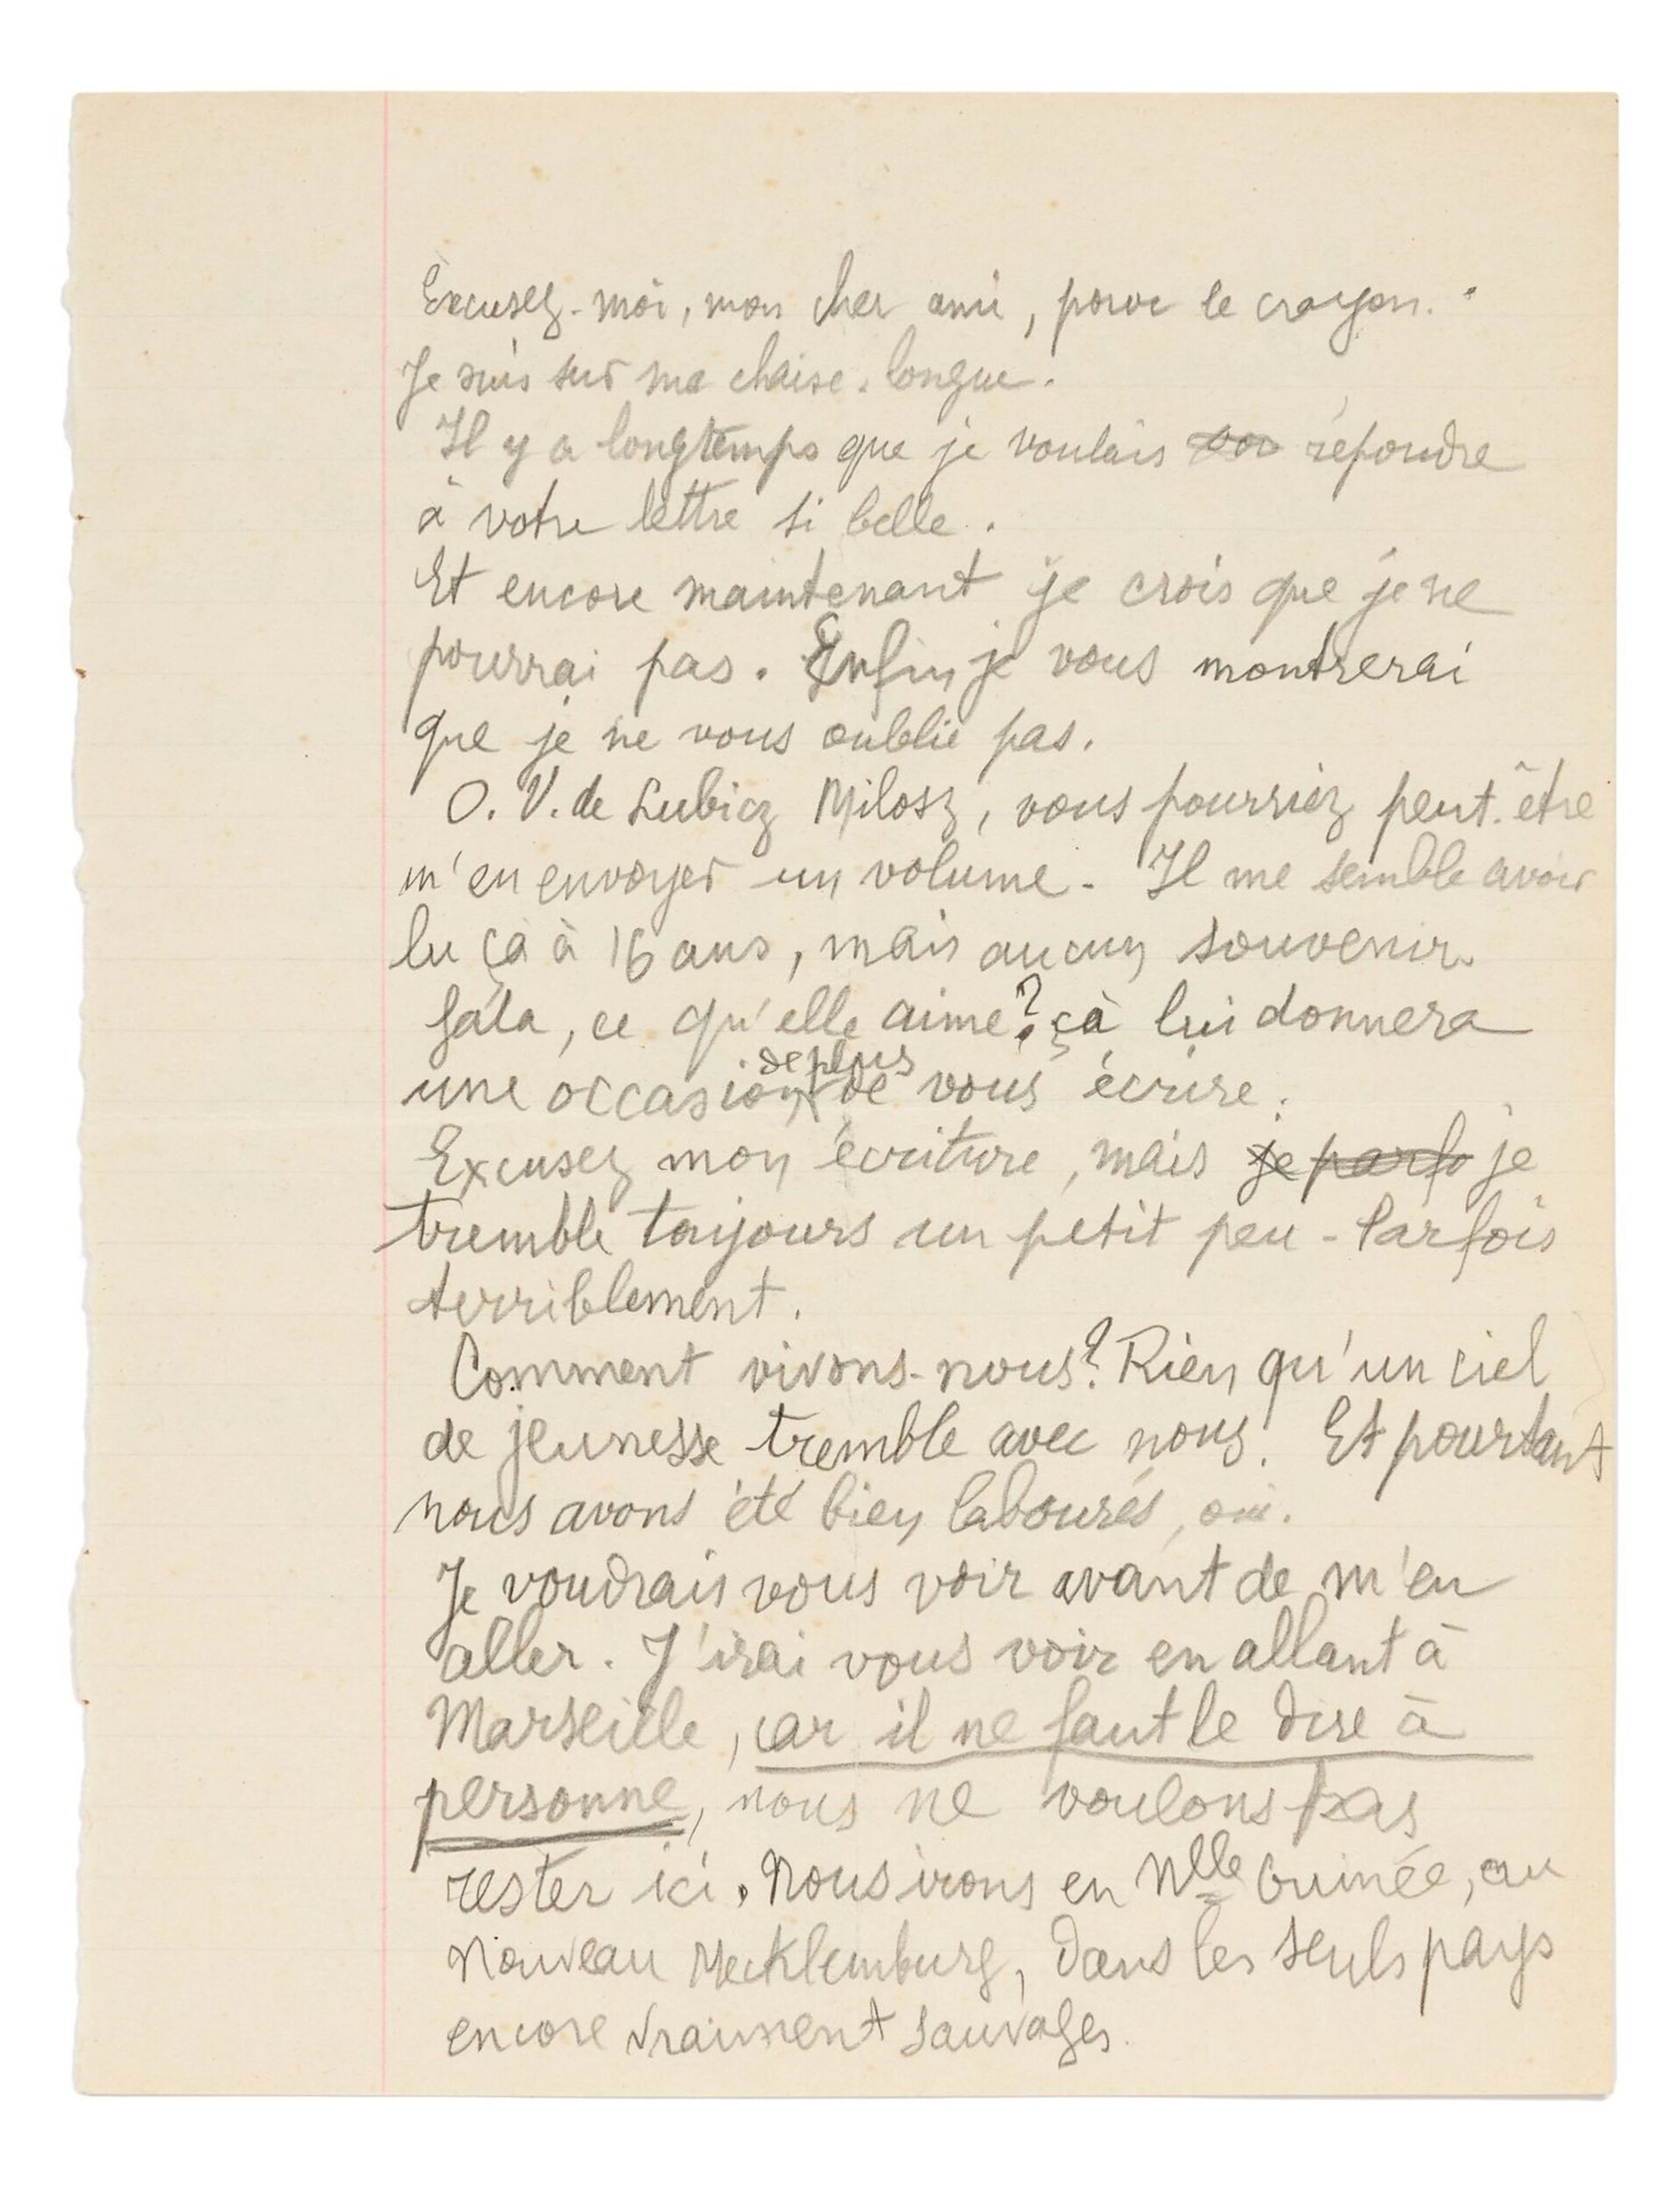 Excusez-moi, mon cher ami, pour le crayon.
Je suis sur ma chaise-longue.
Il y a longtemps que je voulais répondre
à votre lettre si belle.
Et encore maintenant je crois que je ne
pourrai pas. Enfin je vous montrerai
que je ne vous oublie pas.
O. V. de Lubicz Milosz, vous pourriez peut-être
m'en envoyer un volume - Il me semble avoir
lu ça à 16 ans, mais aucun souvenir.
Gala, ce qu'elle aime? çà lui donnera
de plus
une occasion de vous écrire.
Excusez mon écriture, mais je parfo je
tremble toujours un petit peu - Parfois
terriblement.
Comment vivons-nous? Rien qu'un ciel
de jeunesse tremble avec nous. Et pourtant
nous avons été bien labourés, oui.
Je voudrais vous voir avant de m'en
aller. J'irai vous voir en allant à
Marseille, car il ne faut le dire à
personne, nous ne voulons pas
rester ici. Nous irons en Nlle Guinée, au
Nouveau Mecklemburg, dans les seuls pays
encore vraiment sauvages.